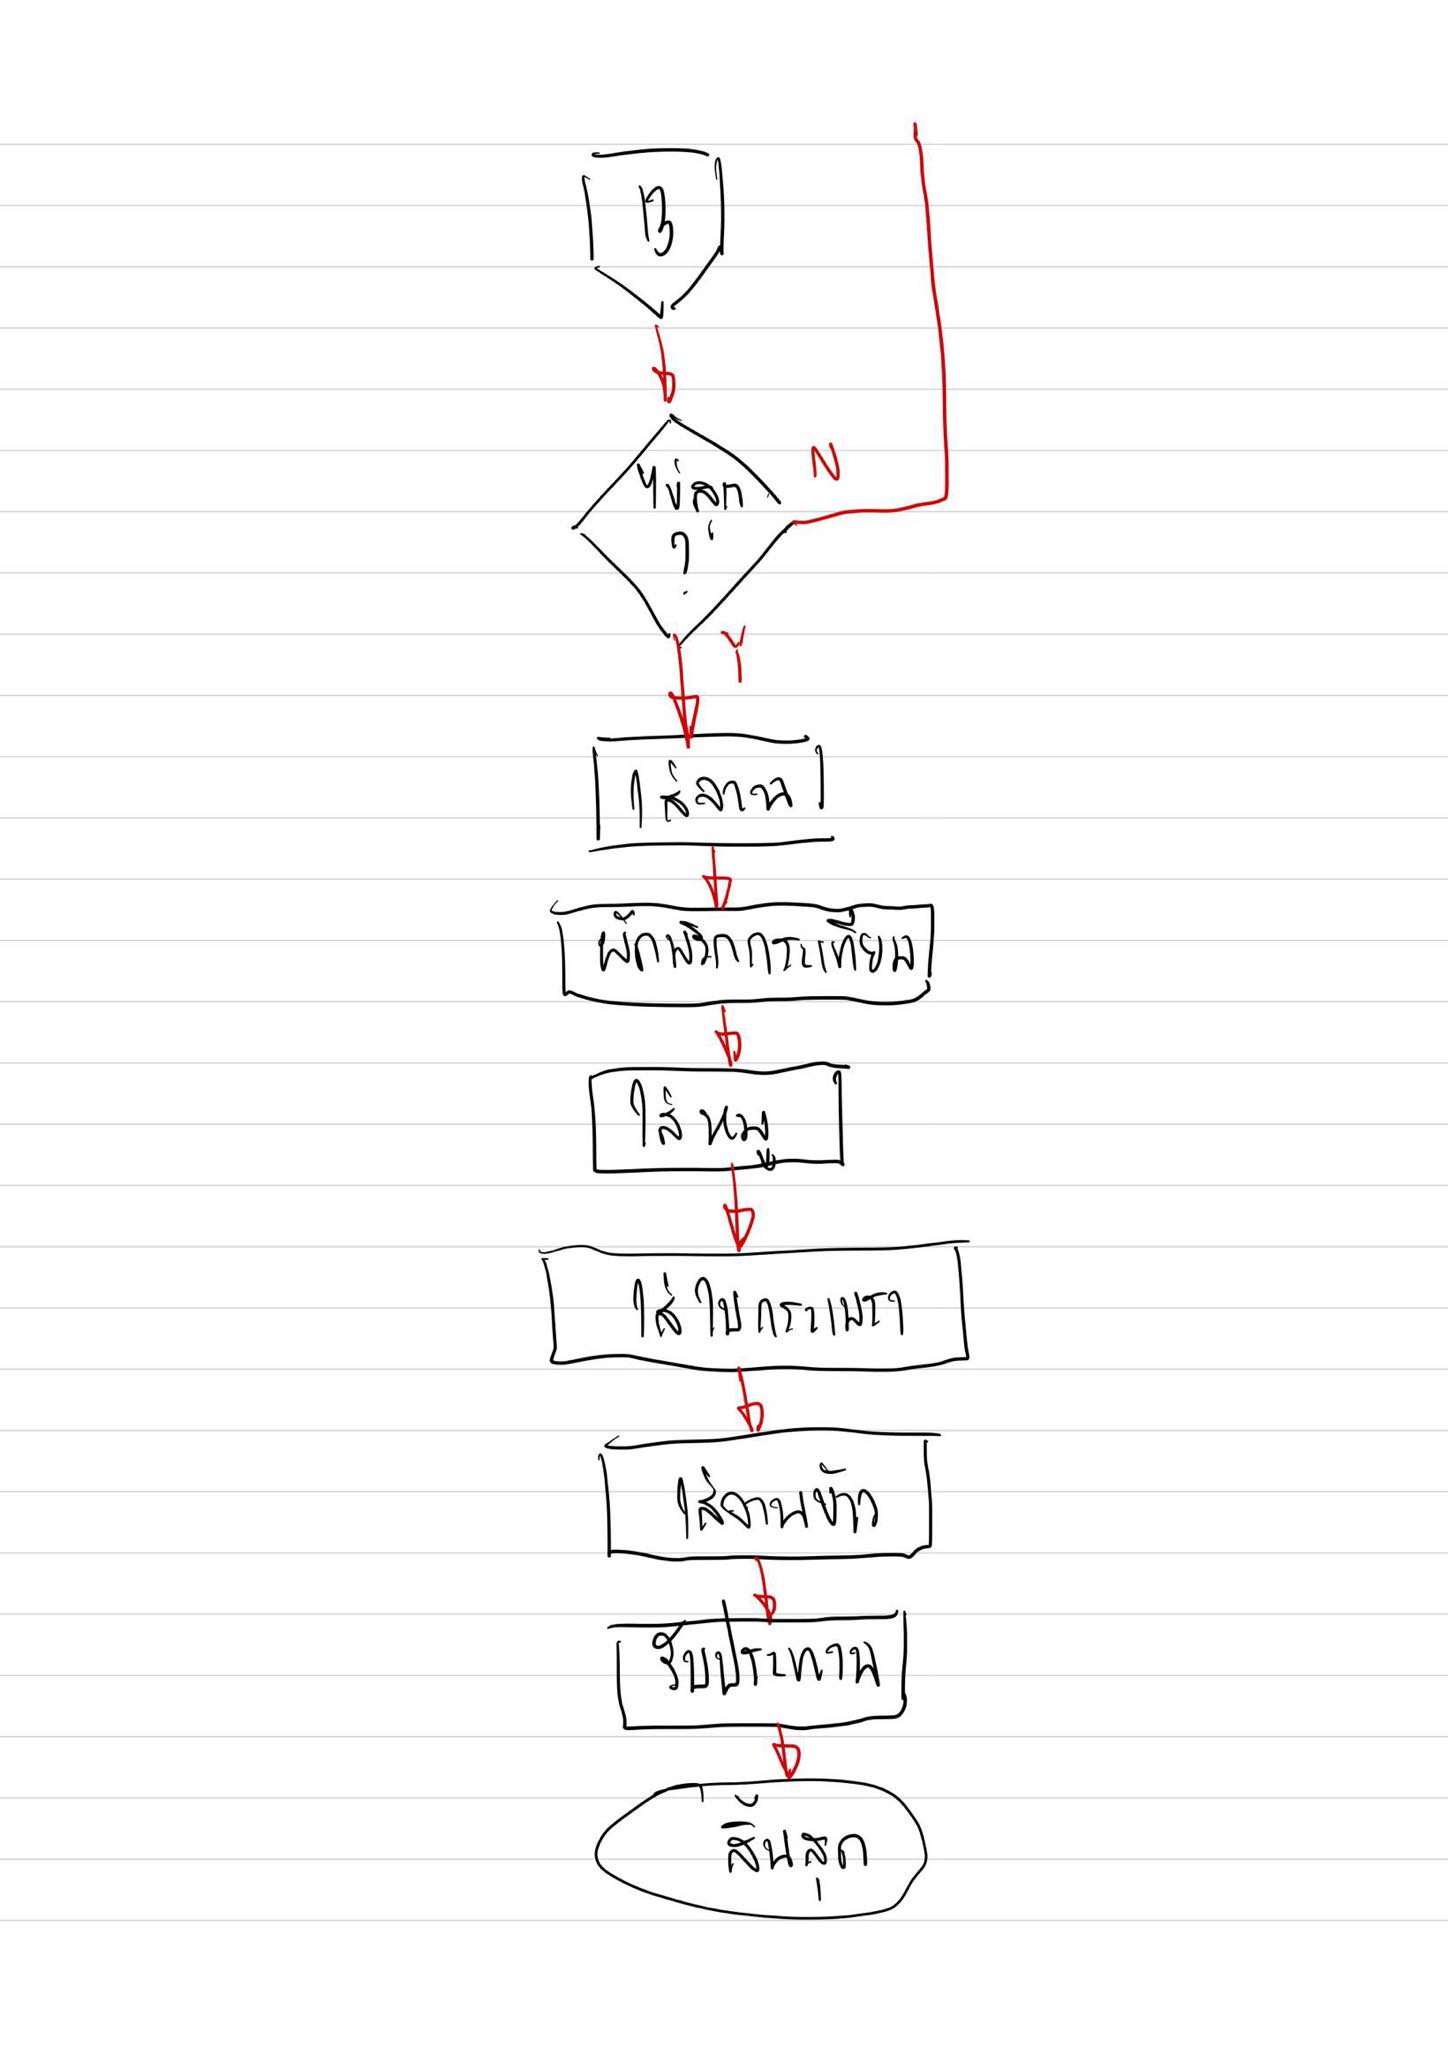 B
ไข่สุก
?
N
Y
ใส่จาน
ผัดพริกกระเทียม
ใส่หมู
ใส่ใบกระเพรา
ใส่จานข้าว
รับประทาน
สิ้นสุด